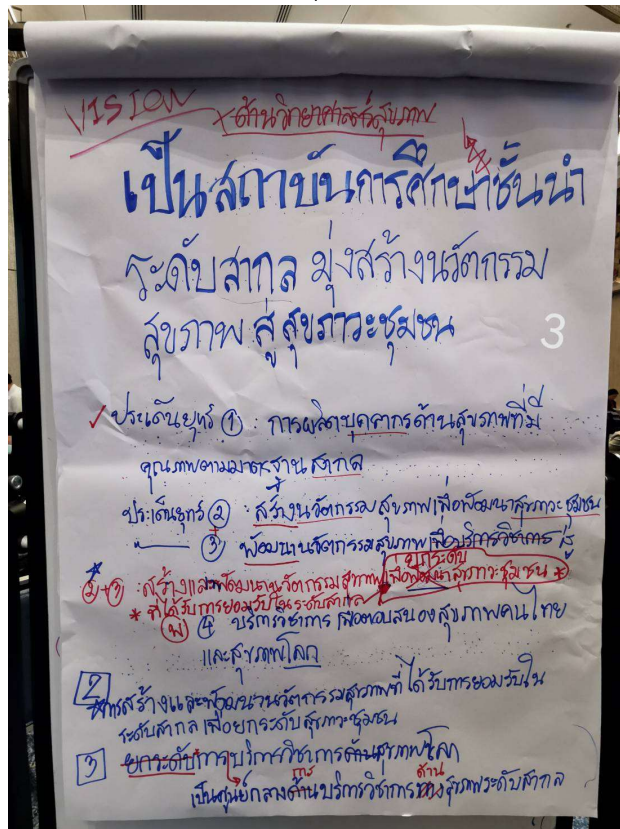 VISION
+ ด้านวิทยาศาสตร์สุขภาพ
เป็นสถาบันการศึกษาชั้นนำ
ระดับสากล มุ่งสร้างนวัตกรรม
สุขภาพ สู่สุขภาวะชุมชน
3
✓ ประเด็นยุทธ์ ① : การผลิตบุคลากรด้านสุขภาพที่มี
คุณภาพตามมาตรฐานสากล
ประเด็นยุทธ์ ② : สร้างนวัตกรรมสุขภาพเพื่อพัฒนาสุขภาวะชุมชน
③ พัฒนานวัตกรรมสุขภาพเพื่อบริการวิชาการ สู่
ยกระดับ
②+③ : สร้างและพัฒนานวัตกรรมสุขภาพเพื่อพัฒนาสุขภาวะชุมชน *
* ที่ได้รับการยอมรับในระดับสากล
④ บริการวิชาการ เพื่อตอบสนองสุขภาพคนไทย
และสุขภาพโลก
2 การสร้างและพัฒนานวัตกรรมสุขภาพที่ได้รับการยอมรับใน
ระดับสากล เพื่อยกระดับสุขภาวะชุมชน
3 ยกระดับการบริการวิชาการด้านสุขภาพโลก
การ ด้าน
เป็นศูนย์กลางด้านบริการวิชาการสุขภาพระดับสากล